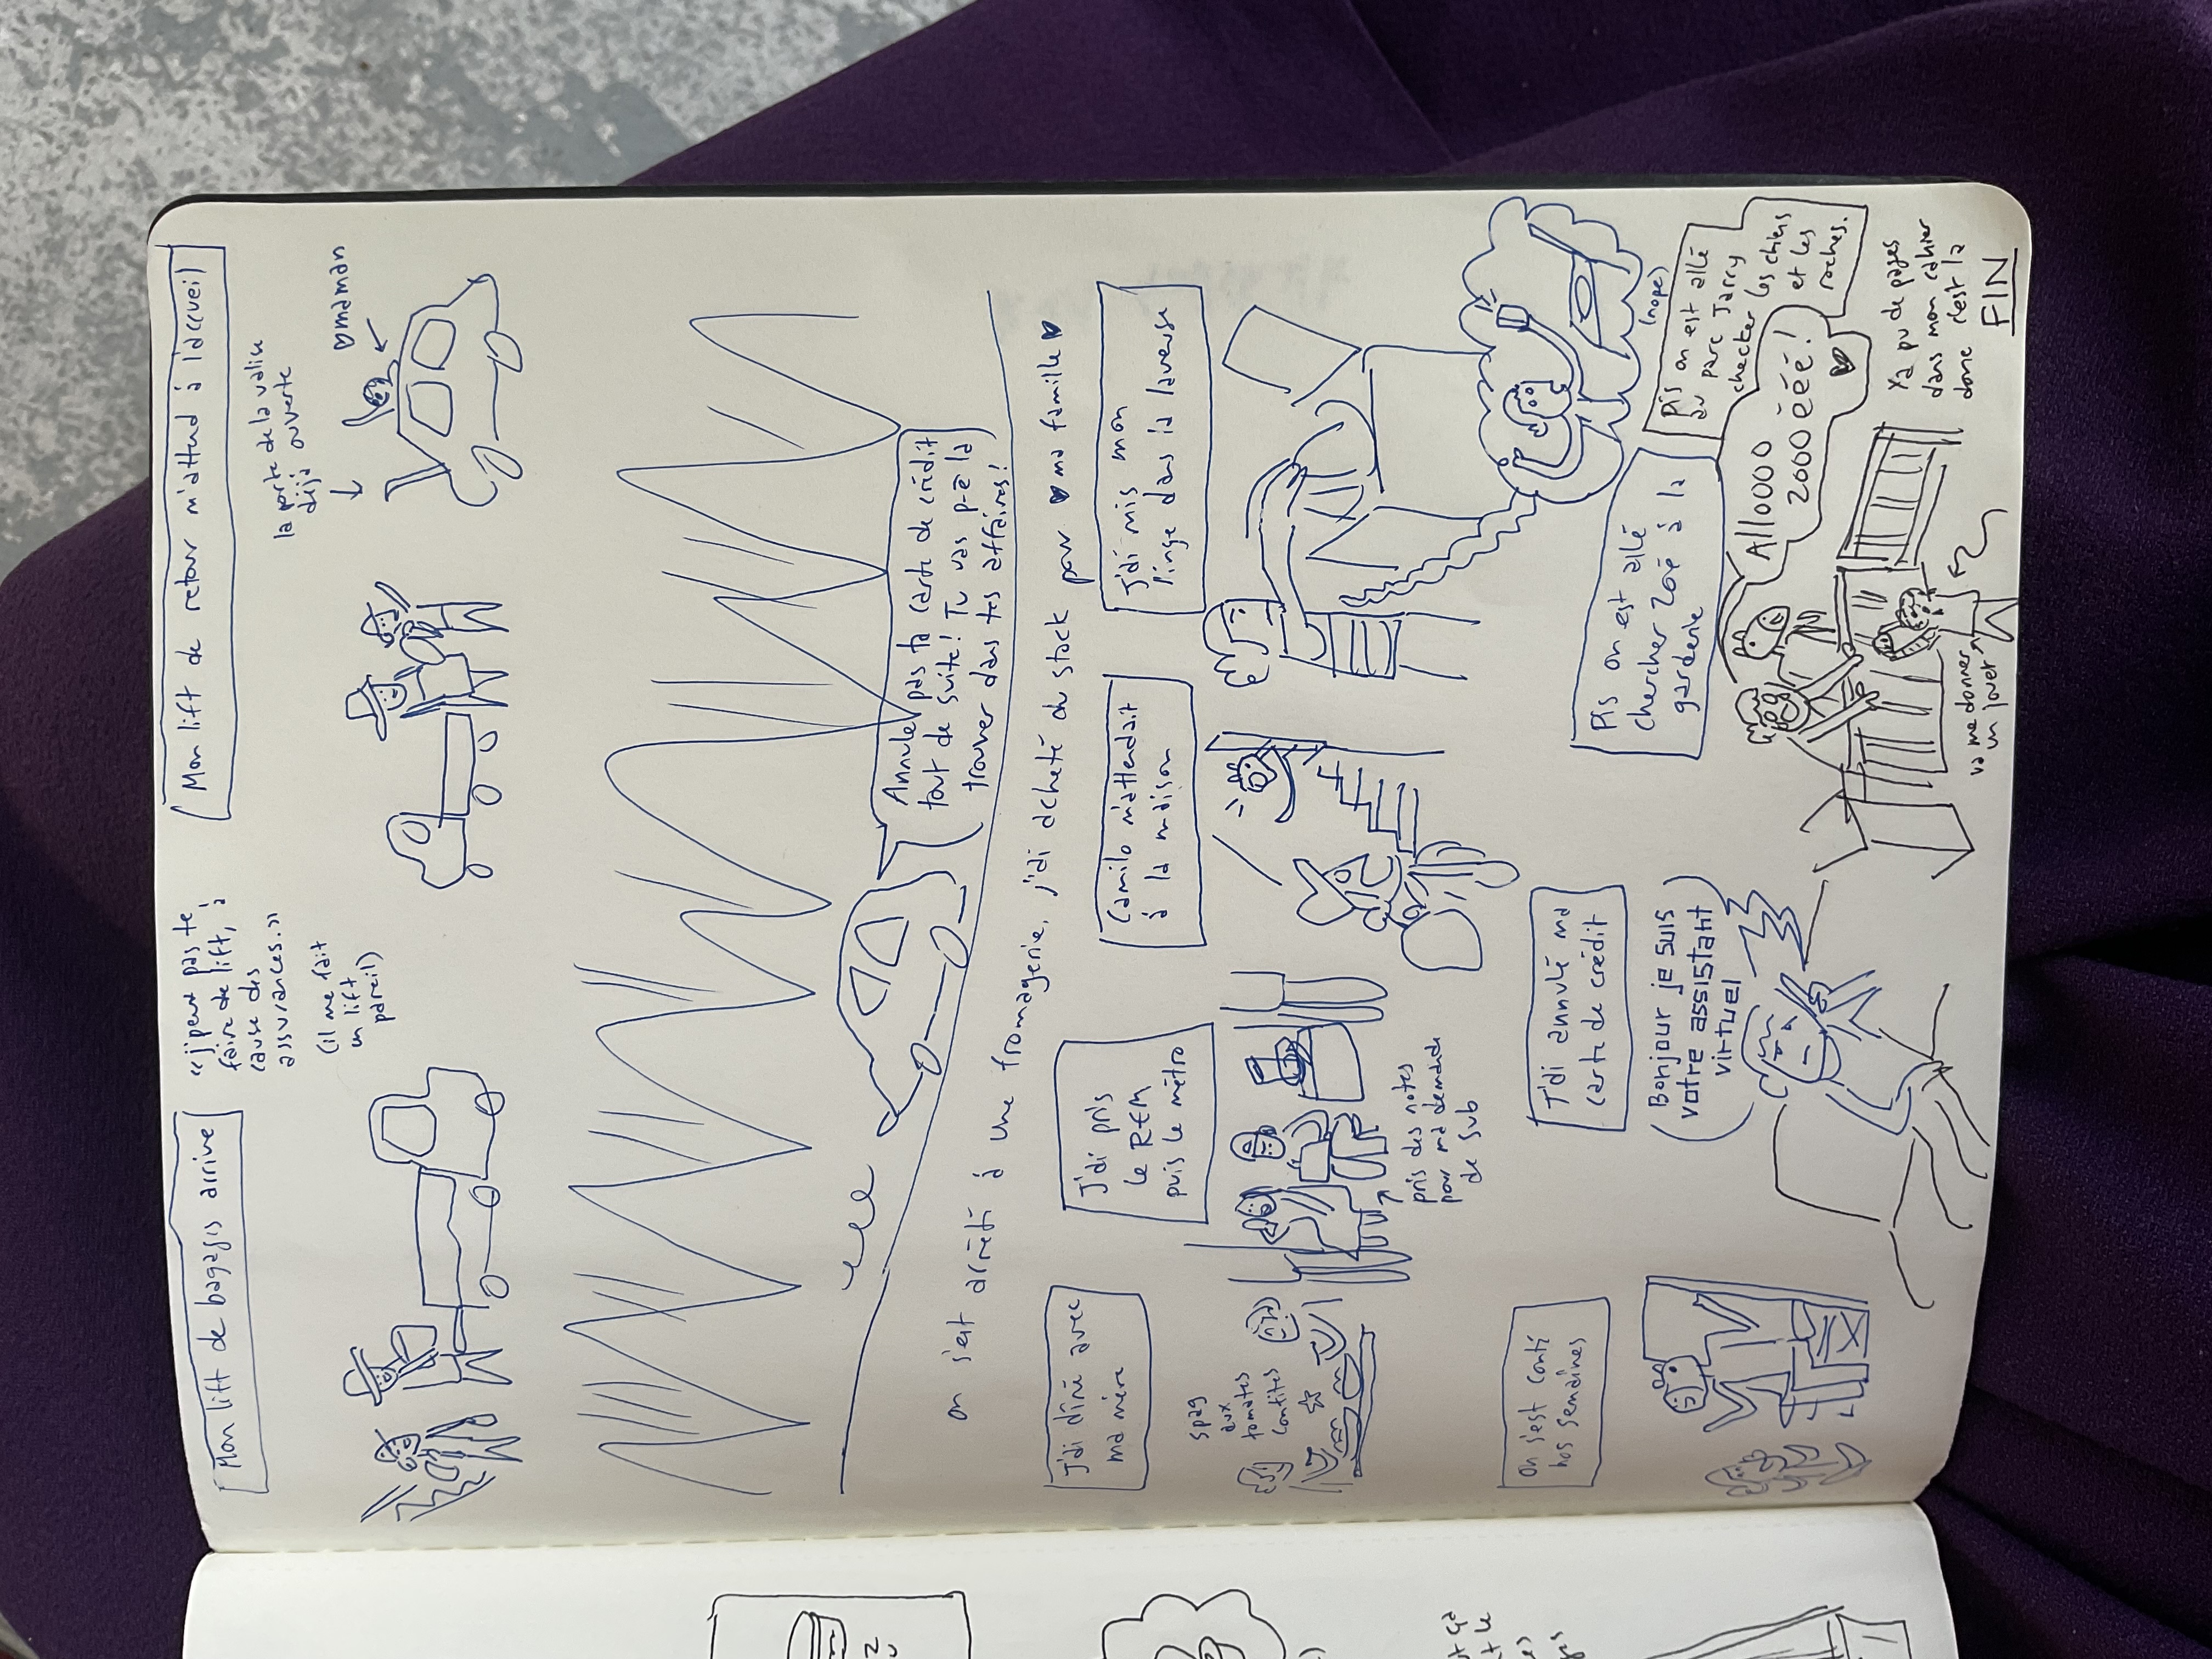 Mon lift de bagages arrive
"j'peux pas te
faire de lift, à
cause des
assurances."
(il me fait
un lift
pareil)
Mon lift de retour m'attend à l'accueil
la porte de la valise
déjà ouverte
maman
Annule pas ta carte de crédit
tout de suite! Tu vas p-ê la
trouver dans tes affaires!
on s'est arrêté à une fromagerie, j'ai acheté du stock pour ♥ ma famille ♥
J'ai dîné avec
ma mère
spag
aux
tomates
confites
J'ai pris
le REM
puis le métro
pris des notes
pour ma demande
de sub
Camilo m'attendait
à la maison
J'ai mis mon
linge dans la laveuse
(nope)
On s'est conté
nos semaines
J'ai annulé ma
carte de crédit
Bonjour je suis
votre assistant
virtuel
Pis on est allé
chercher Zoé à la
garderie
Alloooo
zoooééé!
♥
va me donner
un jouet
Pis on est allé
au parc Jarry
checker les chiens
et les
roches.
Ya pu de pages
dans mon cahier
donc c'est la
FIN